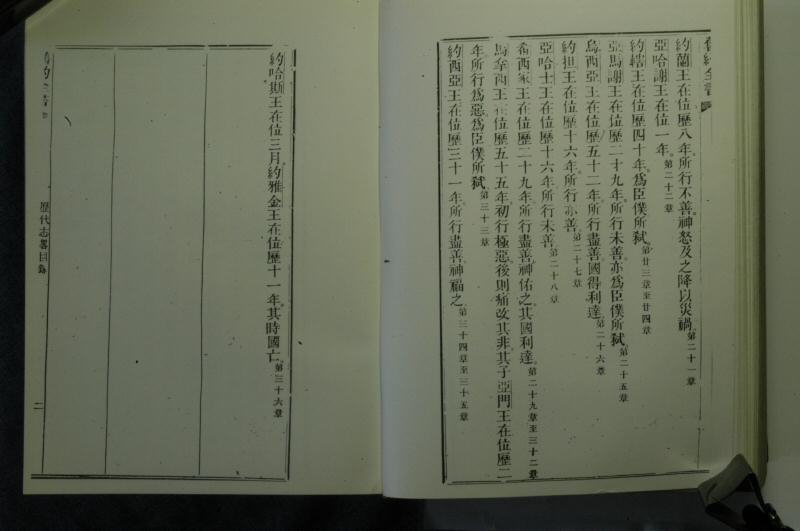 舊約全書
約蘭王在位歷八年。所行不善。神怒及之。降以災禍。第二十一章
亞哈謝王在位一年。第二十二章
約轄王在位歷四十年。爲臣僕所弒。第廿三章至廿四章
亞馬謝王在位歷二十九年。所行未善。亦爲臣僕所弒。第二十五章
烏西亞王在位歷五十二年。所行盡善。國得利達。第二十六章
約担王在位歷十六年。所行亦善。第二十七章
亞哈士王在位歷十六年。所行未善。第二十八章
希西家王在位歷二十九年。所行盡善。神佑之。其國利達。第二十九章至三十二章
馬拿西王在位歷五十五年。初行極惡。後則痛改其非。其子亞門王在位歷二
年。所行爲惡。爲臣僕所弒。第三十三章
約西亞王在位歷三十一年。所行盡善。神福之。第三十四章至三十五章
約哈斯王在位三月。約雅金王在位歷十一年。其時國亡。第三十六章
歷代志畧目錄
二